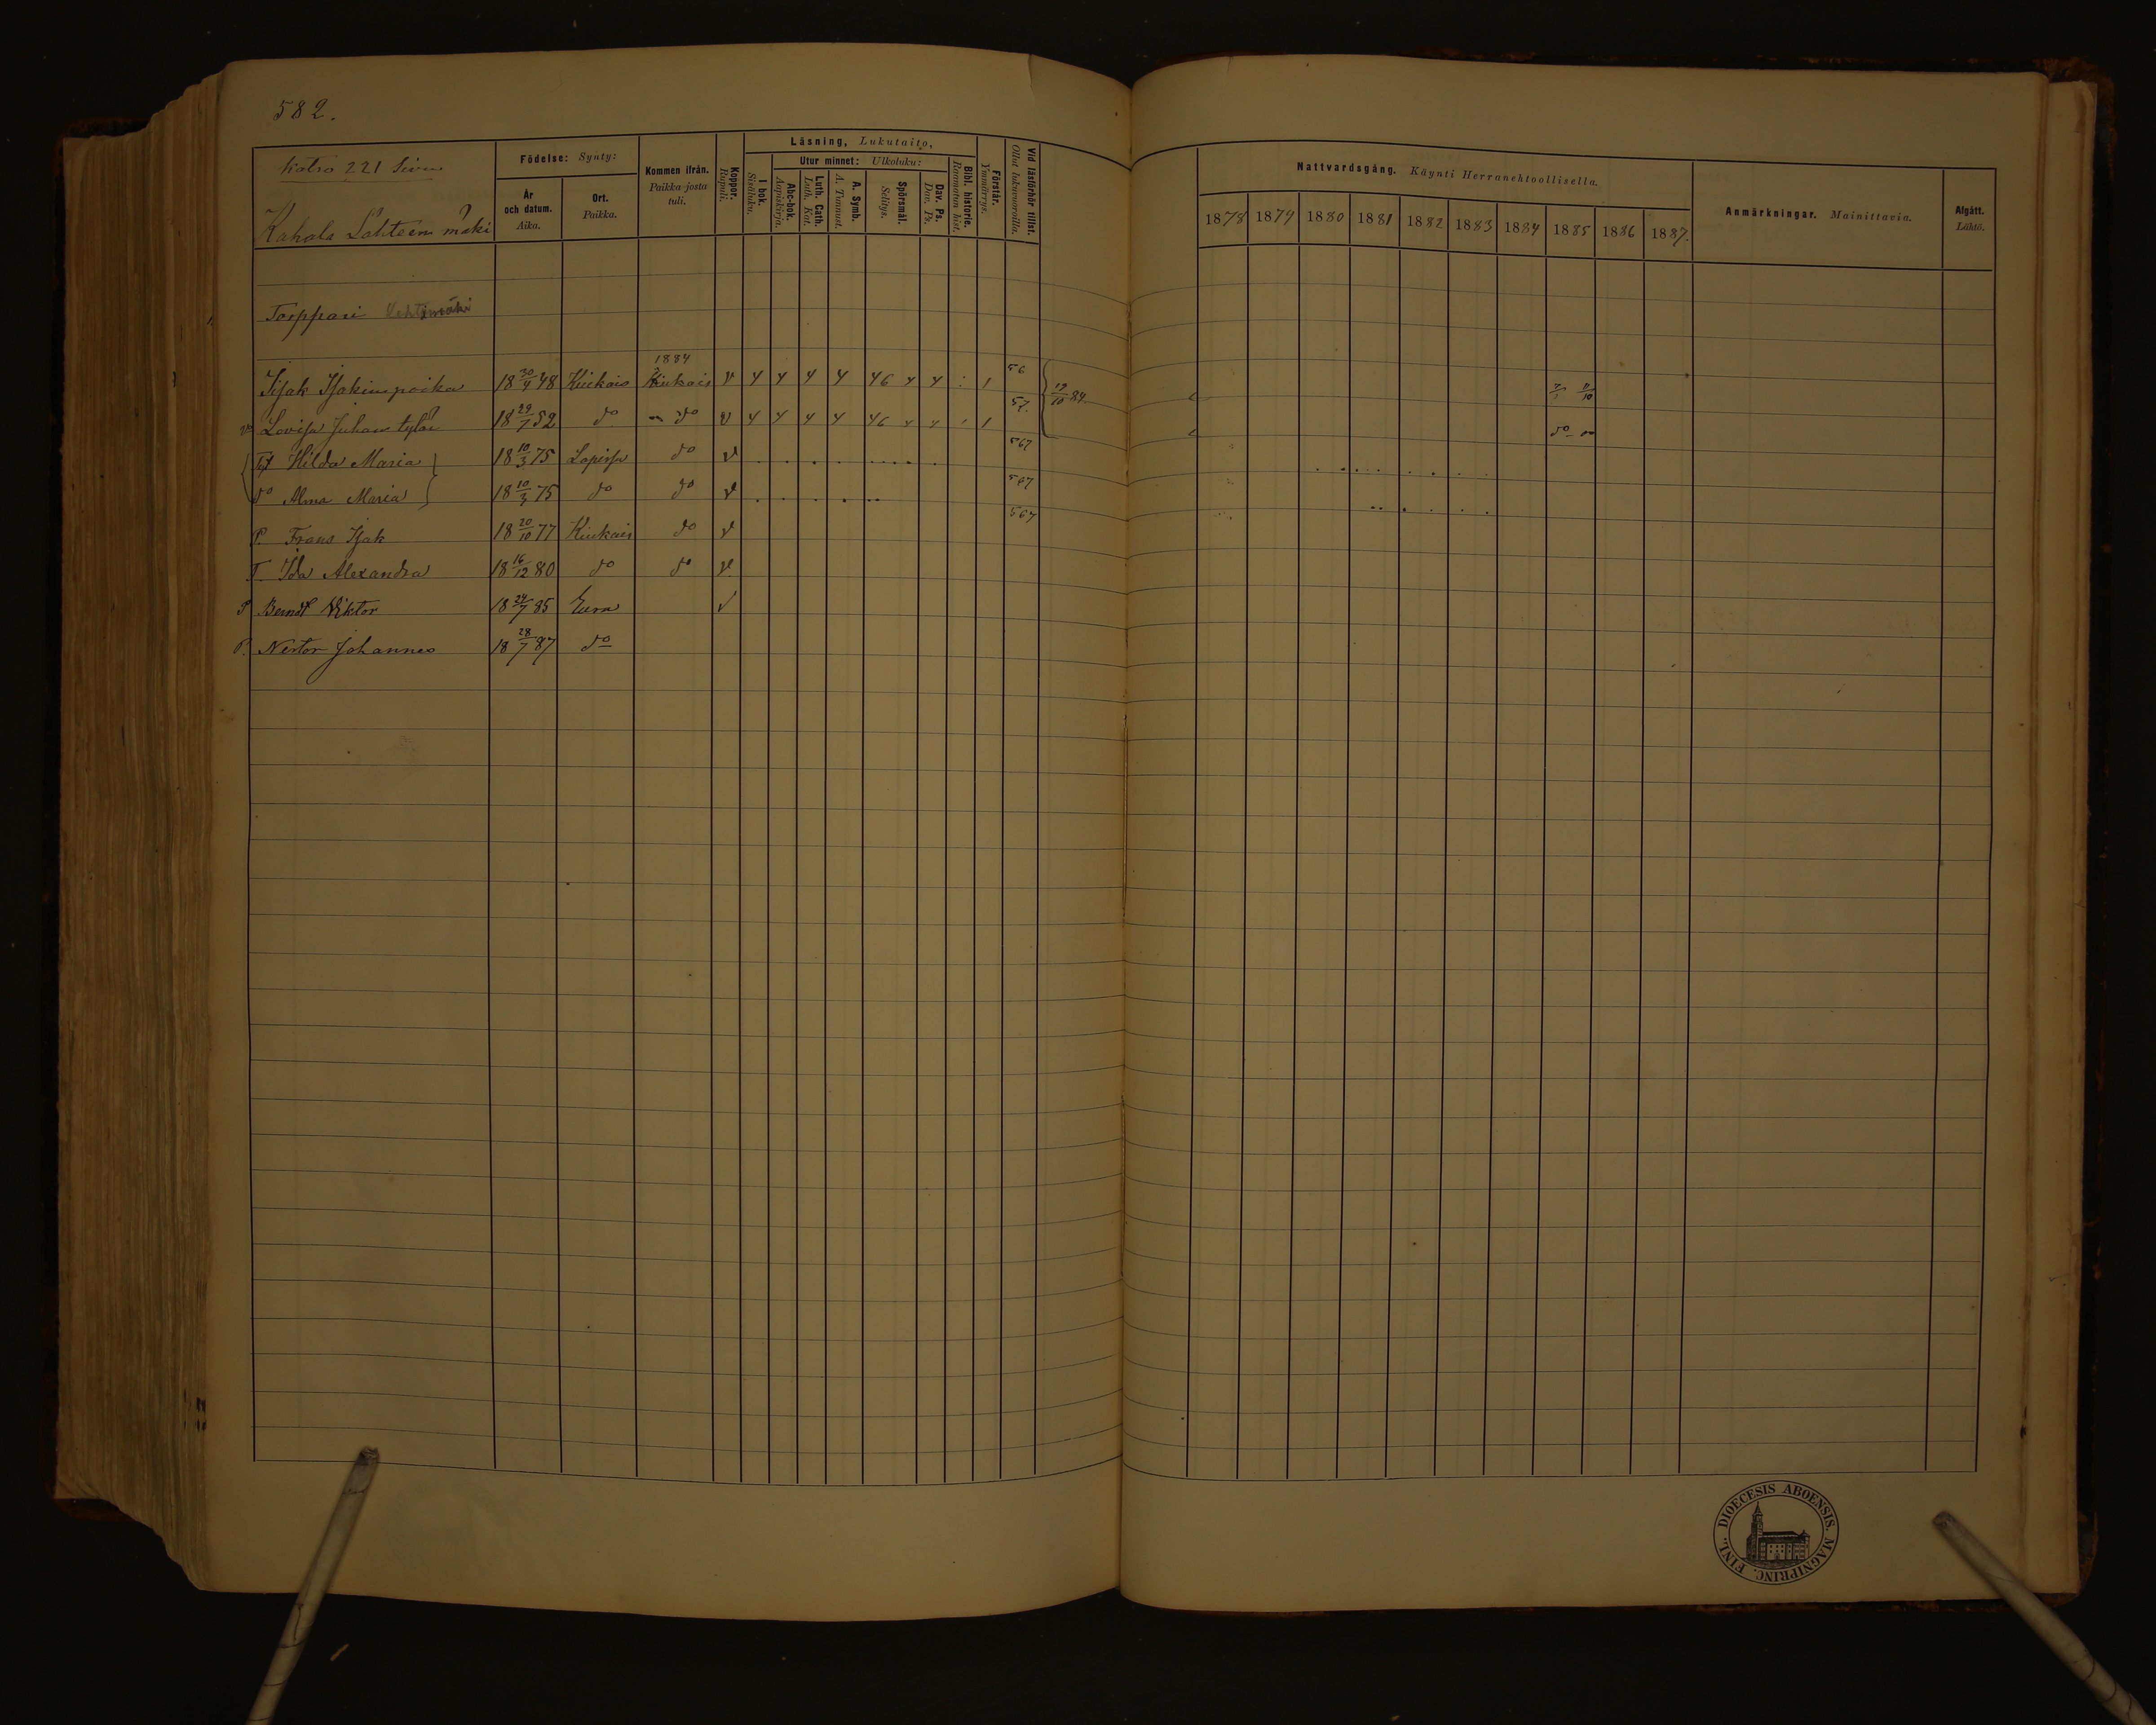 582.
Katso 221 Sivu
Kahala Lähteenmäki
Födelse: Synty:
År och datum. Aika.
Ort. Paikka.
Kommen ifrån. Paikka josta tuli.
Koppor. Rupuli.
Läsning, Lukutaito,
I bok. Sisäluku.
Utur minnet: Ulkoluku:
Abc-bok. Aapiskirja.
Luth. Cath. Luth. Kat.
A. Symb. A. Tunnust.
Spörsmål. Selitys.
Dav. Ps. Dav. Ps.
Bibl. historie. Raamatun hist.
Förstår. Ymmärrys.
Vid läsförhör tillst. Ollut lukuvuoroilla.
Nattvardsgång. Käynti Herranehtoollisella.
1878 1879 1880 1881 1882 1883 1884 1885 1886 1887.
Anmärkningar. Mainittavia.
Afgått. Lähtö.
Torppari
1884
Isak Isakinpoika 18 30/4 48 Kiukais Kiukais v 4 4 4 4 46 4 4 1 56 19/10 84
v Lovisa Juhan tytär 18 29/7 52 do do v 4 4 4 4 46 4 4 1 57 do
Hilda Maria 18 10/3 75 Lapissa do v 567
do Alma Maria 18 10/3 75 do do v 567
P. Frans Isak 18 20/10 77 Kiukais do v 567
T. Ida Alexandra 18 16/12 80 do do v
P Berndt Viktor 18 24/7 85 Eura v
P. Nestor Johannes 18 28/7 87 do
FINL. DIOECESIS ABOENSIS. MAGNIPRINC.